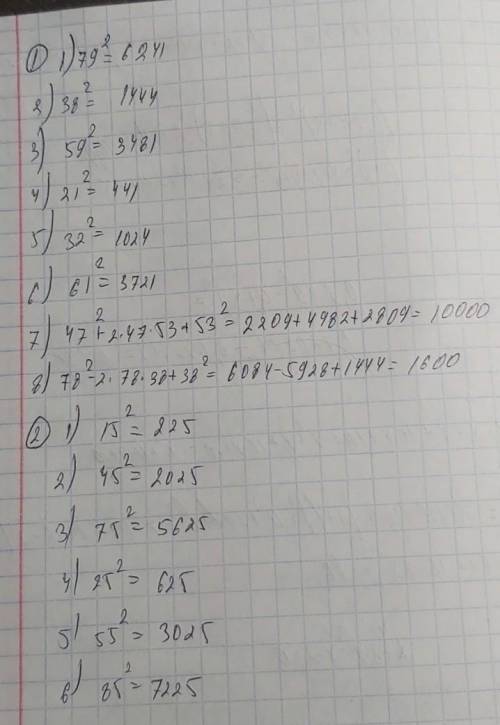 ① 1) 79² = 6241
2) 38² = 1444
3) 59² = 3481
4) 21² = 441
5) 32² = 1024
6) 61² = 3721
7) 47² + 2·47·53 + 53² = 2209 + 4982 + 2809 = 10000
8) 78² - 2·78·38 + 38² = 6084 - 5928 + 1444 = 1600
② 1) 15² = 225
2) 45² = 2025
3) 75² = 5625
4) 25² = 625
5) 55² = 3025
6) 85² = 7225